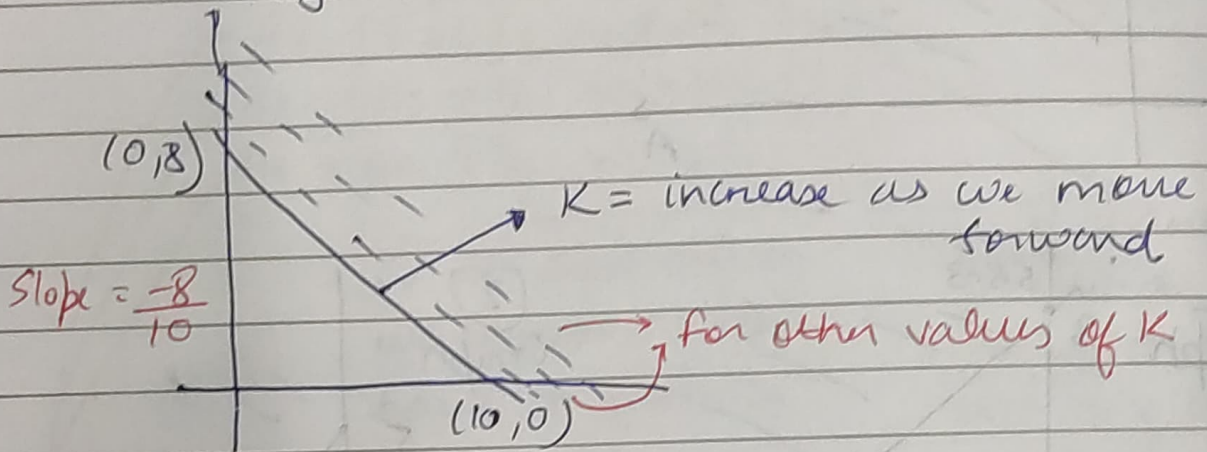 (0,8)
K = increase as we move
forward
Slope = -8/10
for other values of K
(10,0)